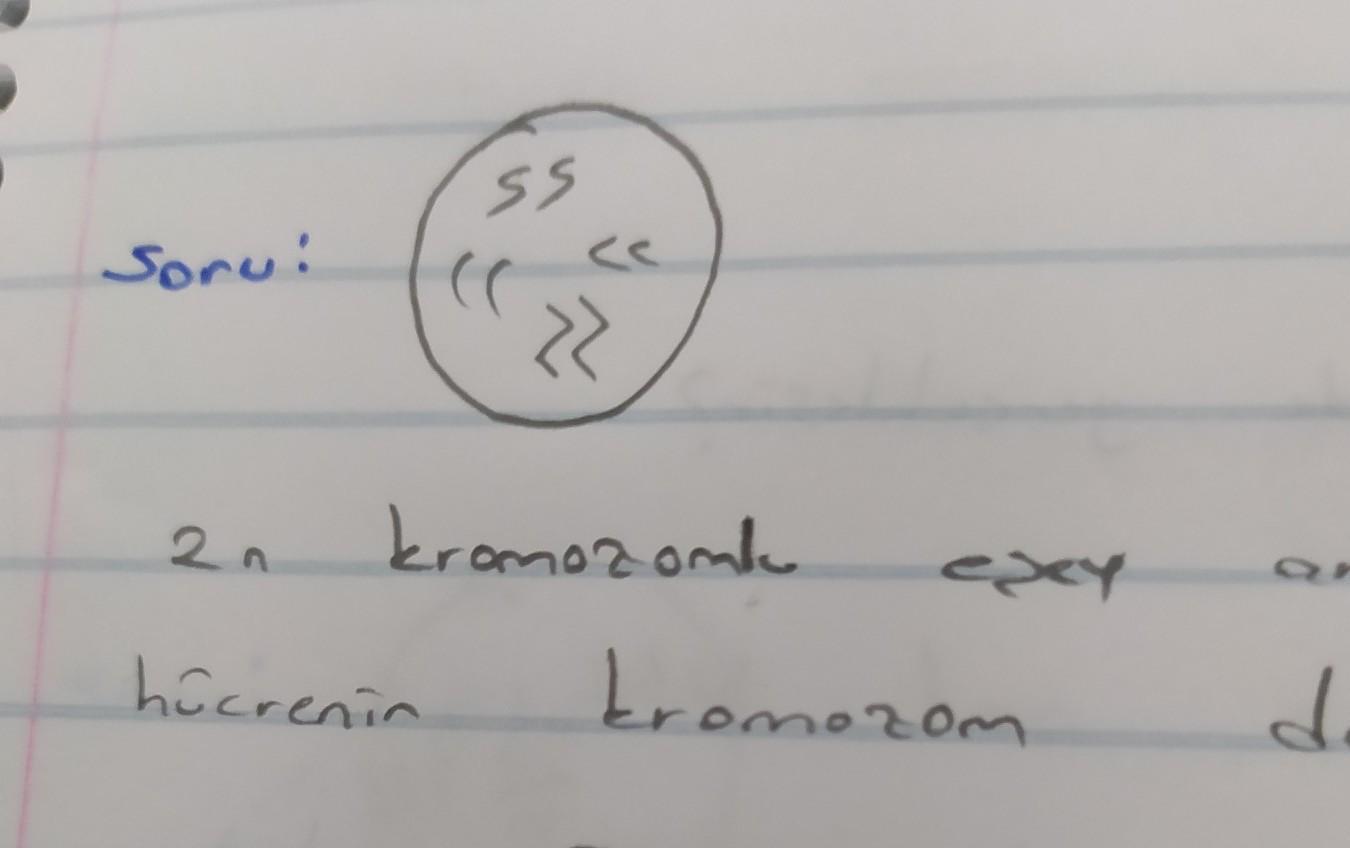 Soru:
2n kromozomlu eşey
hücrenin kromozom